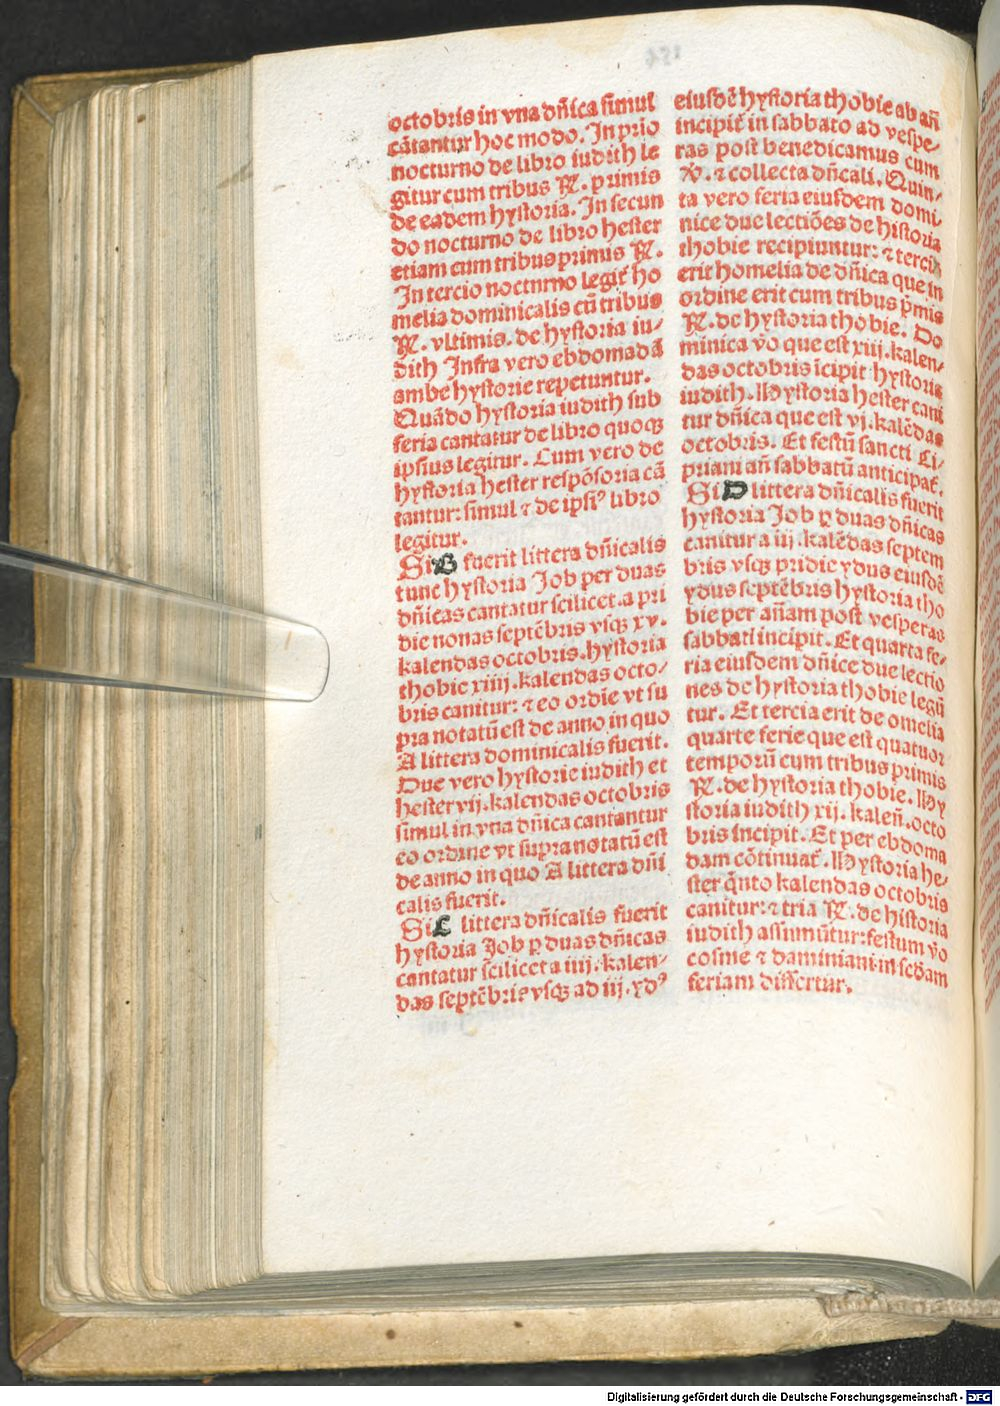 octobris in vna dñica simul
cātantur hoc modo. In prio
nocturno de libro iudith le
gitur cum tribus R̷. primis
de eadem hystoria. In secun
do nocturno de libro hester
etiam cum tribus primis R̷.
In tercio nocturno legit᷑ ho
melia dominicalis cū tribus
R̷. vltimis. de hystoria iu⸗
dith Infra vero ebdomadā
ambe hystorie repetuntur.
Quādo hystoria iudith sub
feria cantatur de libro quoqꝫ
ipsius legitur. Cum vero de
hystoria hester respōsoria cā
tantur: simul ⁊ de ipsiꝰ libro
legitur.
Si B fuerit littera dñicalis
tunc hystoria Job per duas
dñicas cantatur scilicet. a pri
die nonas septēbris vsqꝫ xv.
kalendas octobris. hystoria
thobie xiiij. kalendas octo⸗
bris canitur: ⁊ eo ordīe vt su
pra notatū est de anno in quo
A littera dominicalis fuerit.
Due vero hystorie iudith et
hester vij. kalendas octobris
simul in vna dñica cantantur
eo ordine vt supra notatū est
de anno in quo A littera dñi
calis fuerit.
Si C littera dñicalis fuerit
hystoria Job ꝑ duas dñicas
cantatur scilicet a iiij. kalen⸗
das septēbris vsqꝫ ad iij. ydꝰ
eiusdē hystoria thobie ab añ
incipit᷑ in sabbato ad vespe⸗
ras post benedicamus cum
V̷. ⁊ collecta dñcali. Quin⸗
ta vero feria eiusdem domi
nice due lectiōes de historia
thobie recipiuntur: ⁊ tercia
erit homelia de dñica que in
ordine erit cum tribus p̄mis
R̷. de hystoria thobie. Do
minica vo que est xiij. kalen⸗
das octobris īcipit hystoria
iudith. Hystoria hester cani
tur dñica que est vj. kalēdas
octobris. Et festū sancti Ci⸗
priani añ sabbatū anticipat᷑.
Si D littera dñicalis fuerit
hystoria Job ꝑ duas dñicas
canitur a iij. kalēdas septem
bris vsqꝫ pridie ydus eiusdē
ydus septēbris hystoria tho
bie per añam post vesperas
sabbati incipit. Et quarta fe⸗
ria eiusdem dñice due lectio
nes de hystoria thobie legū
tur. Et tercia erit de omelia
quarte ferie que est quatuor
temporū cum tribus primis
R̷. de hystoria thobie. Hy
storia iudith xij. kaleñ. octo
bris incipit. Et per ebdoma
dam cōtinuat᷑. Hystoria he⸗
ster q̄nto kalendas octobris
canitur: ⁊ tria R̷. de historia
iudith assumūtur: festum vo
cosme ⁊ daminiani in scd̄am
feriam differtur.
Digitalisierung gefördert durch die Deutsche Forschungsgemeinschaft - DFG